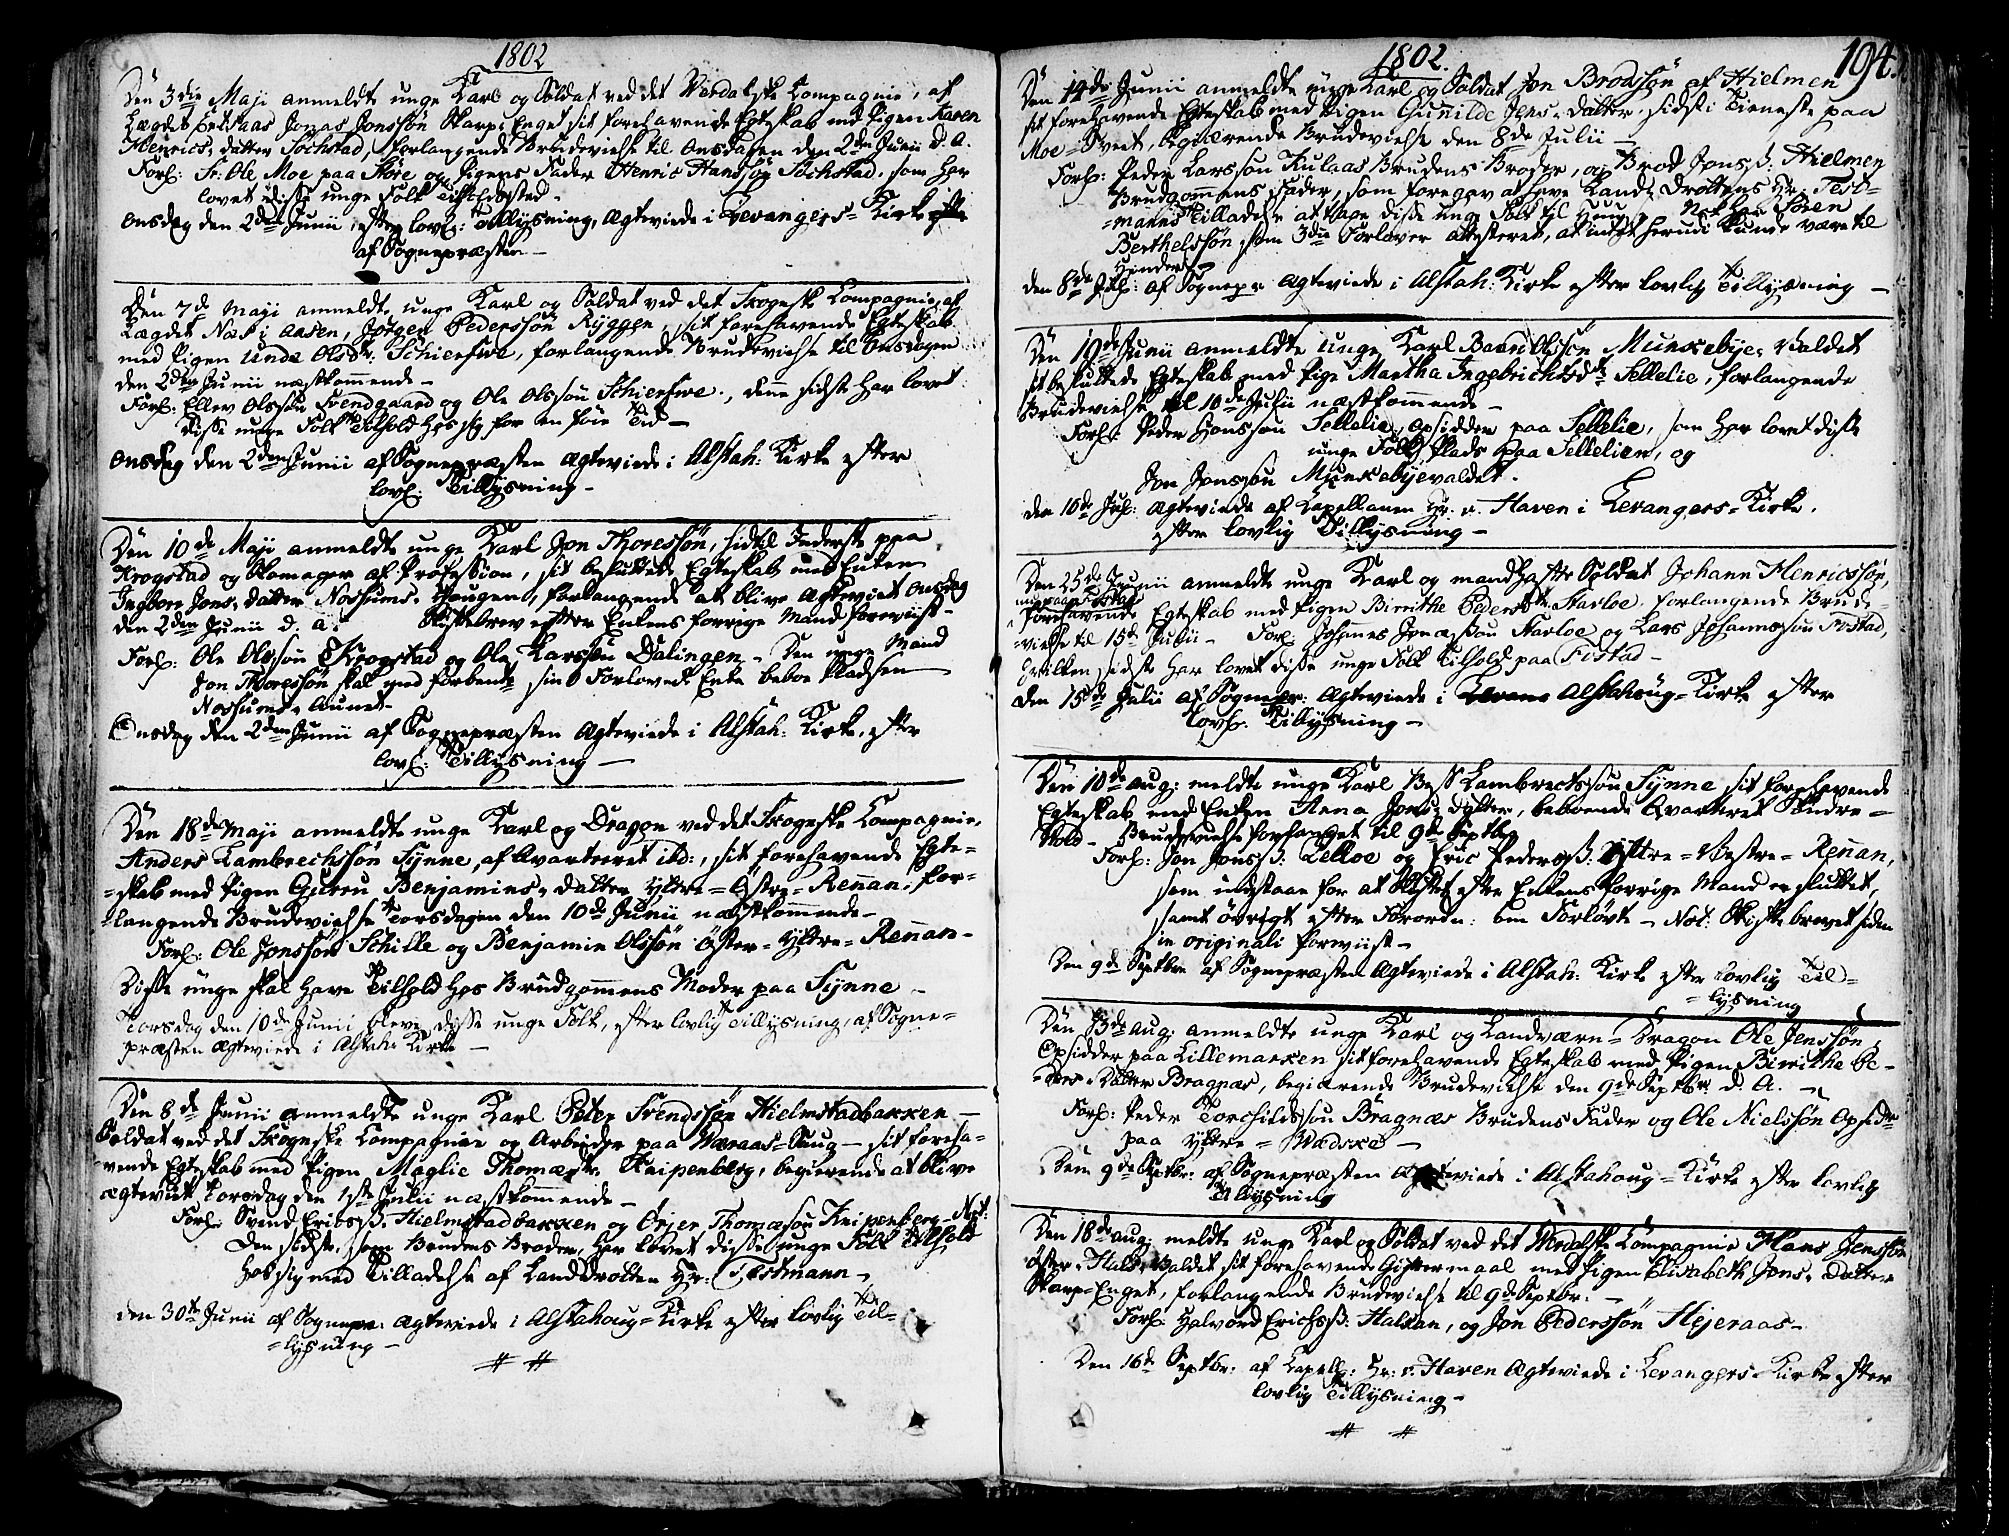 1802
Den 3die Maji anmeldte unge Karl og Soldat ved det Werdalske Compagnie, af
Lægdet Jonas Jonssön Skarp-Enget sit forehavende Egteskab med Pigen Karen
Henrics-datter Sochstad, forlangende Brudevielse til Onsdagen den 2den Junii d. A.
Forl: Sr: Ole Moe paa Flöre og Pigens Fader Henric Hanssön Sochstad, som har
lovet disse unge Folk Tilholdssted.
Onsdag den 2den Junii, efter lovl: Tillysning, Ægteviede i Levangers-Kirke
af Sognepræsten —
Den 7de Maji anmeldte unge Karl og Soldat ved det Skognske Compagnie, af
Lægdet Næs i Aasen, Jörgen Pederssön Ryggen, sit forehavende Egteskab
med Pigen Unde Olsdtr. Schierfwe, forlangende Brudevielse til Onsdagen
den 2den Junii næstkommende —
Forl: Ellev Olssön Svendgaard og Ole Olssön Schierfwe, denne sidste har lovet
disse unge Folk Tilhold hos sig for en föie Tid —
Onsdag den 2den Junii af Sognepræsten Ægteviede i Alstah: Kirke efter
lovl: Tillysning —
Den 10de Maji anmeldte unge Karl Jon Thoressön, hidtil Inderste paa
Krogstad og Skomager af Profession, sit besluttede Egteskab med Enken
Ingbore Jons-datter Nossums-Vangen, forlangende at blive Ægteviet Onsdag
den 2den Junii d. A. Skiftebrev efter Enkens forrige Mand foreviist —
Forl: Ole Olssön Krogstad og Ole Larssön Dalingen — Den unge Mand
Jon Thoressön skal med forbemte sin Forlovede Enke beboe Pladsen
Nossums-Aunet —
Onsdag den 2den Junii af Sognepræsten Ægteviede i Alstah: Kirke, efter
lovl: Tillysning —
Den 18de Maji anmeldte unge Karl og Dragon ved det Skognske Compagnie,
Anders Lambrechssön Synne, af Qvarteret ibd:, sit forehavende Egte-
-skab med Pigen Gurru Benjamins-datter Yttre-Östre-Renan, for-
-langende Brudevielse Torsdagen den 10de Junii næstkommende —
Forl: Ole Jonssön Schille og Benjamin Olssön Öster-Yttre-Renan —
Disse unge skal have Tilhold hos Brudgommens Moder paa Synne —
Torsdag den 10de Junii bleve disse unge Folk, efter lovlig Tillysning, af Sogne-
præsten Ægteviede i Alstah: Kirke —
Den 8de Junii anmeldte unge Karl Peter Svendssön Hielmstadbakken —
Soldat ved det Skognske Compagnie og Arbeider paa Wæraas-Saug — sit foreha-
vende Egteskab med Pigen Maglie Thomædtr. Knipenberg, begierende at blive
Ægteviet Torsdag den 1ste Julii næstkommende —
Forl: Svend Ericsß. Hielmstadbakken og Örjer Thomæsön Knipenberg — Not:
den sidste, som Brudens Broder, har lovet disse unge Folk Tilhold
hos sig med Tilladelse af Landdrotten Hr: Testmann —
den 30te Junii af Sognepr: Ægteviede i Alstahoug-Kirke efter lovlig Til-
-lysning —
1802. 194.
Den 14de Junii anmeldte unge Karl og Soldat Jon Brodssön af Hielmen
sit forehavende Egteskab med Pigen Gunilde Jens-datter, sidst i Tieneste paa
Moe-Sveet, begiærende Brudevielse den 8de Julii —
Forl: Peder Larssön Kulaas Brudens Broder, og Brod Jonsß. Hielmen
Brudgommens Fader, som foregav at have Landdrottens Hr: Test-
-manns Tilladelse at tage disse unge Folk til Huus. Sören
Berthelssön som 3die Forlover attesteret, at intet herudi kunde være til
Hinder —
den 8de Jul: af Sognepr Ægteviede i Alstah: Kirke efter lovlig Tillysning —
Den 19de Junii anmeldte unge Karl Baar Olssön Munkebye-Valdet
sit besluttede Egteskab med Pige Martha Ingebrichtsdtr Sellelie, forlangende
Brudevielse til 10de Julii næstkommende —
Forl: Peder Hanssön Sellelie, Opsidder paa Sellelie, som har lovet disse
unge Folk Plads paa Sellelien, og
Jon Jonssön Munkebyevaldet.
den 10de Jul: Ægteviede af Capellanen Hr. v. Haven i Levangers-Kirke.
efter lovlig Tillysning —
Den 25de Junii anmeldte unge Karl og mandhafte Soldat Johann Henricssön,
nu paa Fostad
forehavende Egteskab med Pigen Birrithe Pedersdtr. Starloe, forlangende Brude-
-vielse til 15de Julii — Forl: Johannes Jonæssön Starloe og Lars Johannssön Fostad,
hvilken sidste har lovet disse unge Folk Tilhold paa Fistad —
den 15de Julii af Sognepr: Ægteviede i Alstahoug-Kirke efter
lovl: Tillysning —
Den 10de Aug: meldte unge Karl Lambrechtssön Synne sit forehavende
Egteskab med Enken Anna Jons-datter, beboende Qvarteret Studre-
Vold — Brudevielse forlanget til 9de Septbr
Forl: Jon Jonsß. Lelloe og Eric Pedersß. Yttre-Vestre-Renan,
som indstaae for at Skiftet efter Enkens forrige Mand er sluttet,
samt övrigt efter Forordn: om Forlövte — Not: Skiftebrevet siden
in originali foreviist —
Den 9de Septbr af Sognepræsten Ægteviede i Alstah: Kirke efter lovlig Til-
-lysning
Den 13de Aug: anmeldte unge Karl og Landværn-Dragon Ole Jenssön,
Opsidder paa Lillemarken sit forehavende Egteskab med Pigen Birrithe Pe-
-ders-Datter Bragnæs, begiærende Brudevielse den 9de Septbr d. A. —
Forl: Peder Torchildssön Bragnæs Brudens Fader og Ole Nielssön Opsidr
paa Yttre-Wadske —
Den 9de Septbr: af Sognepræsten Ægteviede i Alstahoug-Kirke efter lovlig
Tillysning
Den 18de Aug: meldte unge Karl og Soldat ved det Werdalske Compagnie Hans Jenssön
Öster-Hald-Valdet sit forehavende Giftermaal med Pigen Elisabeth Jons-Datter
Skarp-Enget, forlangende Brudevielse til 9de Septbr: —
Forl: Halvord Erichsß: Halsan, og Jon Pederssön Hejeraas —
Den 16de Septbr: af Capell: Hr: v. Haven Ægteviede i Levangers-Kirke efter
lovlig Tillysning —